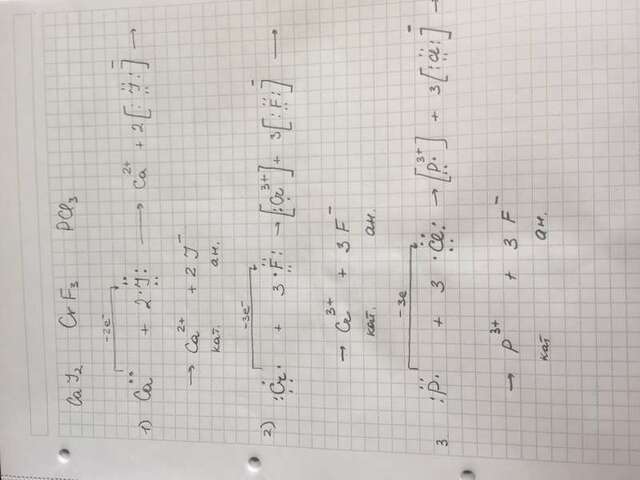 CaJ₂ CrF₃ PCl₃
-2e⁻
1) Ca + 2·J: → Ca²⁺ + 2[:J:]⁻ →
→ Ca²⁺ + 2J⁻
кат. ан.
-3e⁻
2) :Cr· + 3·F: → [:Cr³⁺] + 3[:F:]⁻ →
→ Cr³⁺ + 3F⁻
кат. ан.
-3e
3 :P· + 3·Cl: → [P:³⁺] + 3[:Cl:]⁻ →
→ P³⁺ + 3F⁻
кат ан.